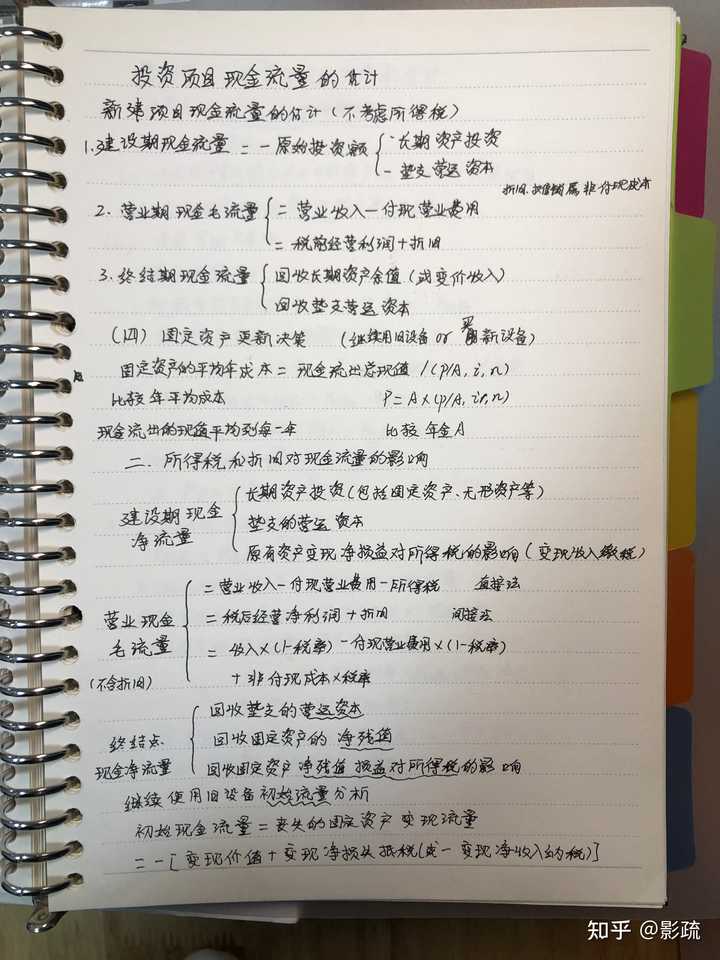 投资项目现金流量的估计
新建项目现金流量的估计(不考虑所得税)
1.建设期现金流量 = -原始投资额
- 长期资产投资
- 垫支营运资本
折旧、摊销属非付现成本
2. 营业期现金毛流量
= 营业收入-付现营业费用
= 税前经营利润+折旧
3. 终结期现金流量
回收长期资产余值(或变价收入)
回收垫支营运资本
(四) 固定资产更新决策 (继续用旧设备 or 买新设备)
固定资产的平均年成本 = 现金流出总现值 /(P/A, i, n)
比较年平均成本 P = A×(P/A, i, n)
现金流出的现值平均到每一年 比较年金A
二、所得税和折旧对现金流量的影响
建设期现金
净流量
长期资产投资(包括固定资产、无形资产等)
垫支的营运资本
原有资产变现净损益对所得税的影响(变现收入缴税)
营业现金
毛流量
(不含折旧)
= 营业收入-付现营业费用-所得税 直接法
= 税后经营净利润+折旧 间接法
= 收入×(1-税率)-付现营业费用×(1-税率)
+非付现成本×税率
终结点
现金净流量
回收垫支的营运资本
回收固定资产的净残值
回收固定资产净残值损益对所得税的影响
继续使用旧设备初始流量分析
初始现金流量=丧失的固定资产变现流量
= -[变现价值+变现净损失抵税(或-变现净收入纳税)]
知乎 @影疏